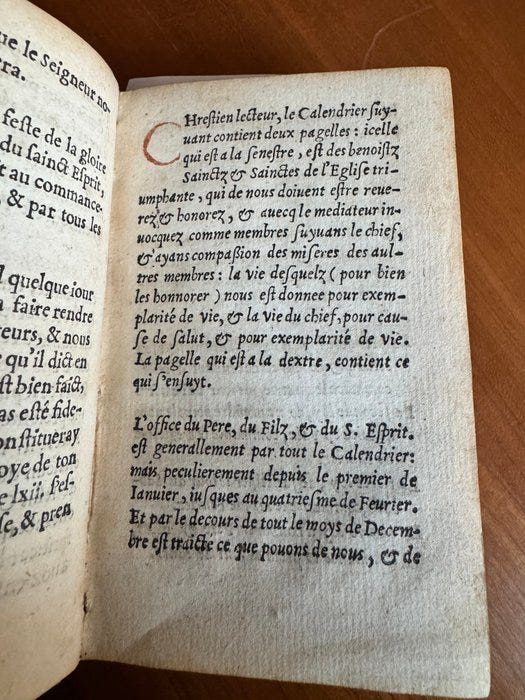 ue le Seigneur no-
ra.
feste de la gloire
du sainct Esprit,
t au commance-
, & par tous les
l quelque iour
a faire rendre
teurs, & nous
e qu'il dict en
st bien faict,
as esté fide-
onstitueray
oye de ton
e lxii, fes-
se, & pren
CHrestien lecteur, le Calendrier suy-
uant contient deux pagelles : icelle
qui est a la senestre, est des benoistz
Sainctz & Sainctes de l'Eglise tri-
umphante, qui de nous doiuent estre reue-
rez & honorez, & auecq le mediateur in-
uocquez comme membres suyuans le chief,
& ayans compassion des miseres des aul-
tres membres : la vie desquelz ( pour bien
les honnorer ) nous est donnee pour exem-
plarité de vie, & la vie du chief, pour cau-
se de salut, & pour exemplarité de vie.
La pagelle qui est a la dextre, contient ce
qui s'ensuyt.
L'office du Pere, du Filz, & du S. Esprit.
est generallement par tout le Calendrier:
mais peculierement depuis le premier de
Ianuier, iusques au quatriesme de Feurier.
Et par le decours de tout le moys de Decem-
bre est traicte ce que pouons de nous, & de